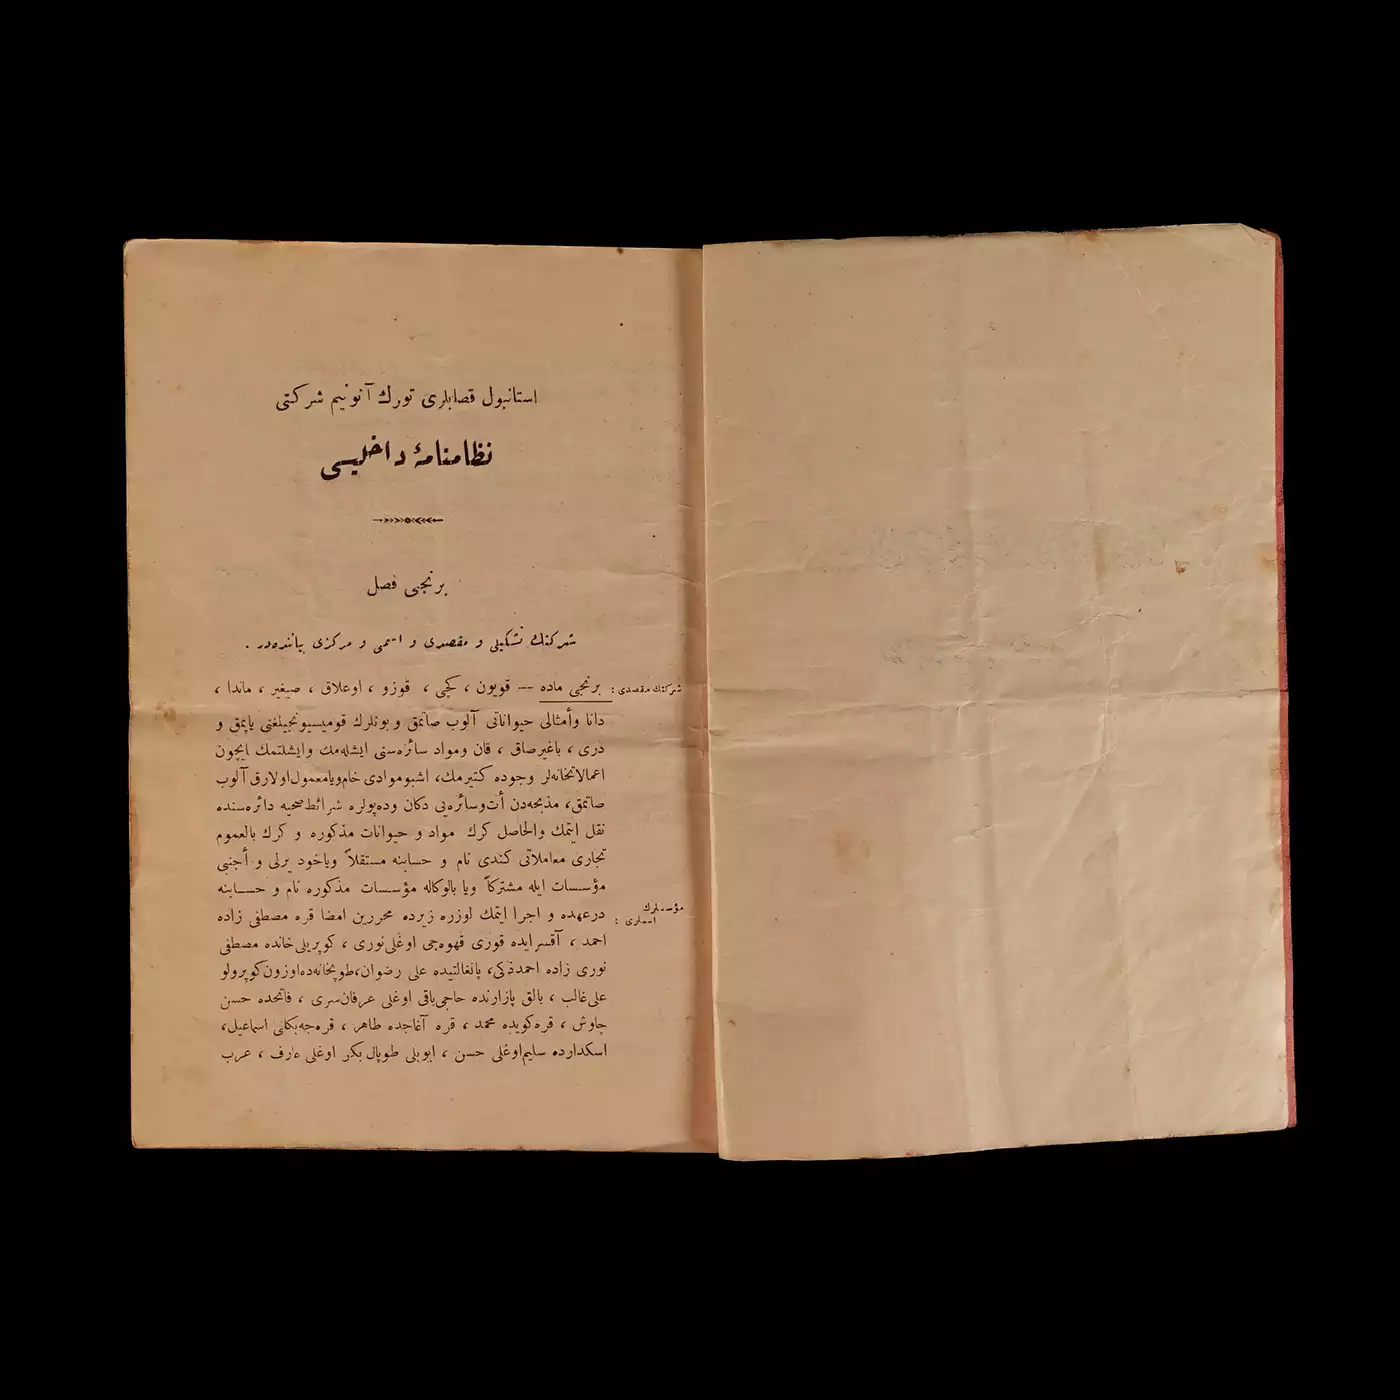 استانبول قصابلری تورك آنونیم شركتی
نظامنامهٔ داخلیسی
برنجی فصل
شركتك تشكیلی و مقصدی و اسمی و مركزی بیاننده‌در .
شركتك مقصدی :
برنجی ماده — قویون ، كچی ، قوزو ، اوغلاق ، صیغیر ، ماندا ،
دانا وأمثالی حیواناتی آلوب صاتمق و بونلرك قومیسیونجیلغنی یاپمق و
دری ، باغیرصاق ، قان ومواد سائره‌سنی ایشله‌مك وایشلتمك ایچون
اعمالاتخانه‌لر وجوده كتیرمك، اشبوموادی خام‌ویامعمول‌اولارق آلوب
صاتمق، مذبحه‌دن أت‌وسائره‌یی دكان وده‌پولره شرائط‌صحیه دائره‌سنده
نقل ایتمك والحاصل كرك مواد و حیوانات مذكوره و كرك بالعموم
تجاری معاملاتی كندی نام و حسابنه مستقلاً ویاخود یرلی و أجنبی
مؤسسات ایله مشتركاً ویا بالوكاله مؤسسات مذكوره نام و حسابنه
مؤسسلرك
اسملری :
درعهده و اجرا ایتمك لوزره زیرده محررین امضا قره مصطفی زاده
احمد ، آقسرایده قوری قهوه‌جی اوغلی‌نوری ، كوپریلی‌خانده مصطفی
نوری زاده احمدذكی، پانغالتیده علی رضوان،طوپخانه‌ده‌اوزون‌كوپرولو
علی‌غالب ، بالق پازارنده حاجی‌باقی اوغلی عرفان‌سری ، فاتحده حسن
چاوش ، قره‌كویده محمد ، قره آغاجده طاهر ، قره‌جه‌بكلی اسماعیل،
اسكدارده سلیم‌اوغلی حسن ، ایوبلی طوپال‌بكر اوغلی عارف ، عرب